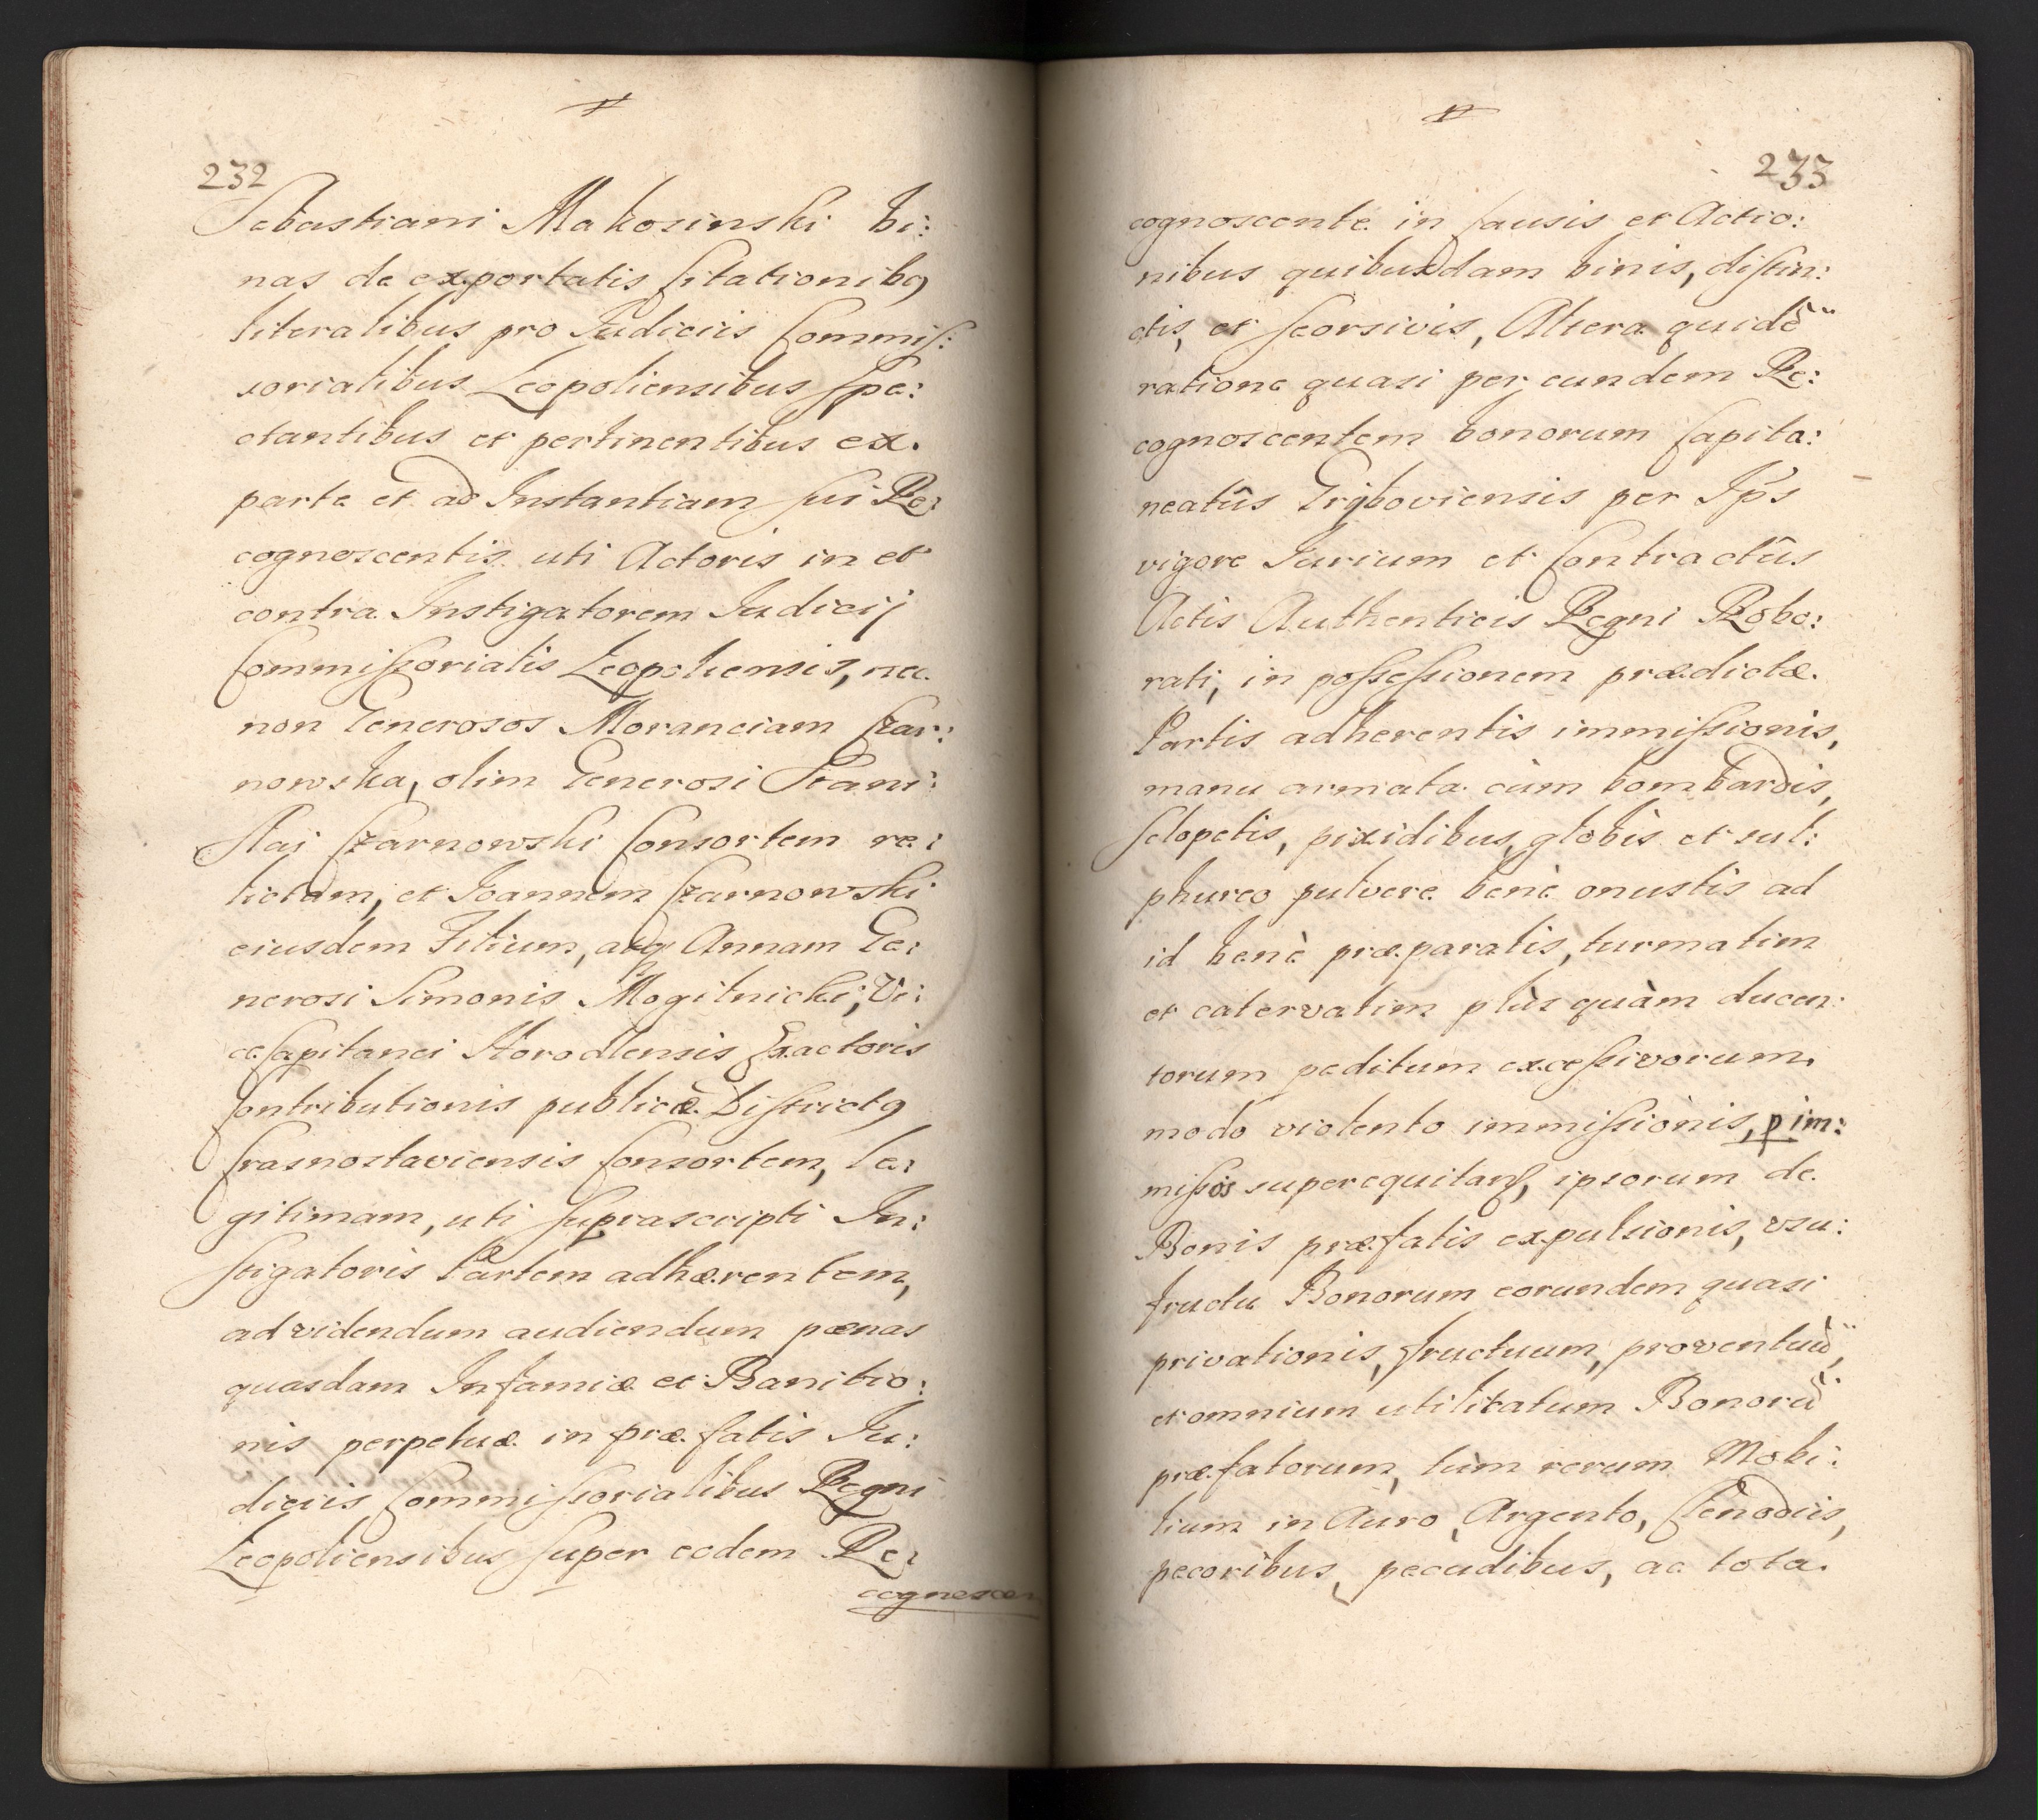 232
Sebastiani Makosinski bi:
nas de exportatis Citationibq
literalibus pro Judiciis Commis:
sorialibus Leopoliensibus spe:
ctantibus et pertinentibus ex
parte et ad Instantiam sui Re:
cognoscentis uti Actoris in et
contra Instigatorem Judicij
Commissorialis Leopoliensis, nec
non Generosos Moranciam Czar:
nowska, olim Generosi Stani:
slai Czarnowski Consortem re:
lictam, et Joannem Czarnowski
eiusdem Filium, atq Annam Ge:
nerosi Simonis Mogilnicki, Vi:
ce Capitanei Horodlensis Exactoris
Contributionis publicæ Districtq
Crasnostaviensis Consortem, le:
gitimam, uti suprascripti In:
stigatoris Partem adhærentem,
ad videndum audiendum pœnas
quasdam Infamiæ et Banitio:
nis perpetuæ in præfatis Ju:
diciis Commissorialibus Regni
Leopoliensibus super eodem Re:
cognoscen
233
cognoscente in Causis et Actio:
nibus quibusdam binis, distin:
ctis, et seorsivis, Altera quidē
ratione quasi per eundem Re:
cognoscentem bonorum Capita:
neatûs Grÿboviensis per Ips
vigore Jurium et Contractûs
Actis Authenticis Regni Robo:
rati, in possessionem prædictæ
Partis adherentis immissionis,
manu armata cùm bombardis,
sclopetis, pixidibus, globis et sul:
phureo pulvere benè onustis ad
id benè præparatis, turmatim
et catervatim plùs quàm ducen:
torum peditum excessivorum
modo violento immissionis, p im:
missos superequitans, ipsorum de
Bonis præfatis expulsionis, usu:
fructu Bonorum eorundem quasi
privationis, fructuum, proventuū,
et omnium utilitatum Bonorū
præfatorum, tùm rerum Mobi:
lium in Auro, Argento, Clenodiis,
pecoribus, pecudibus, ac tota